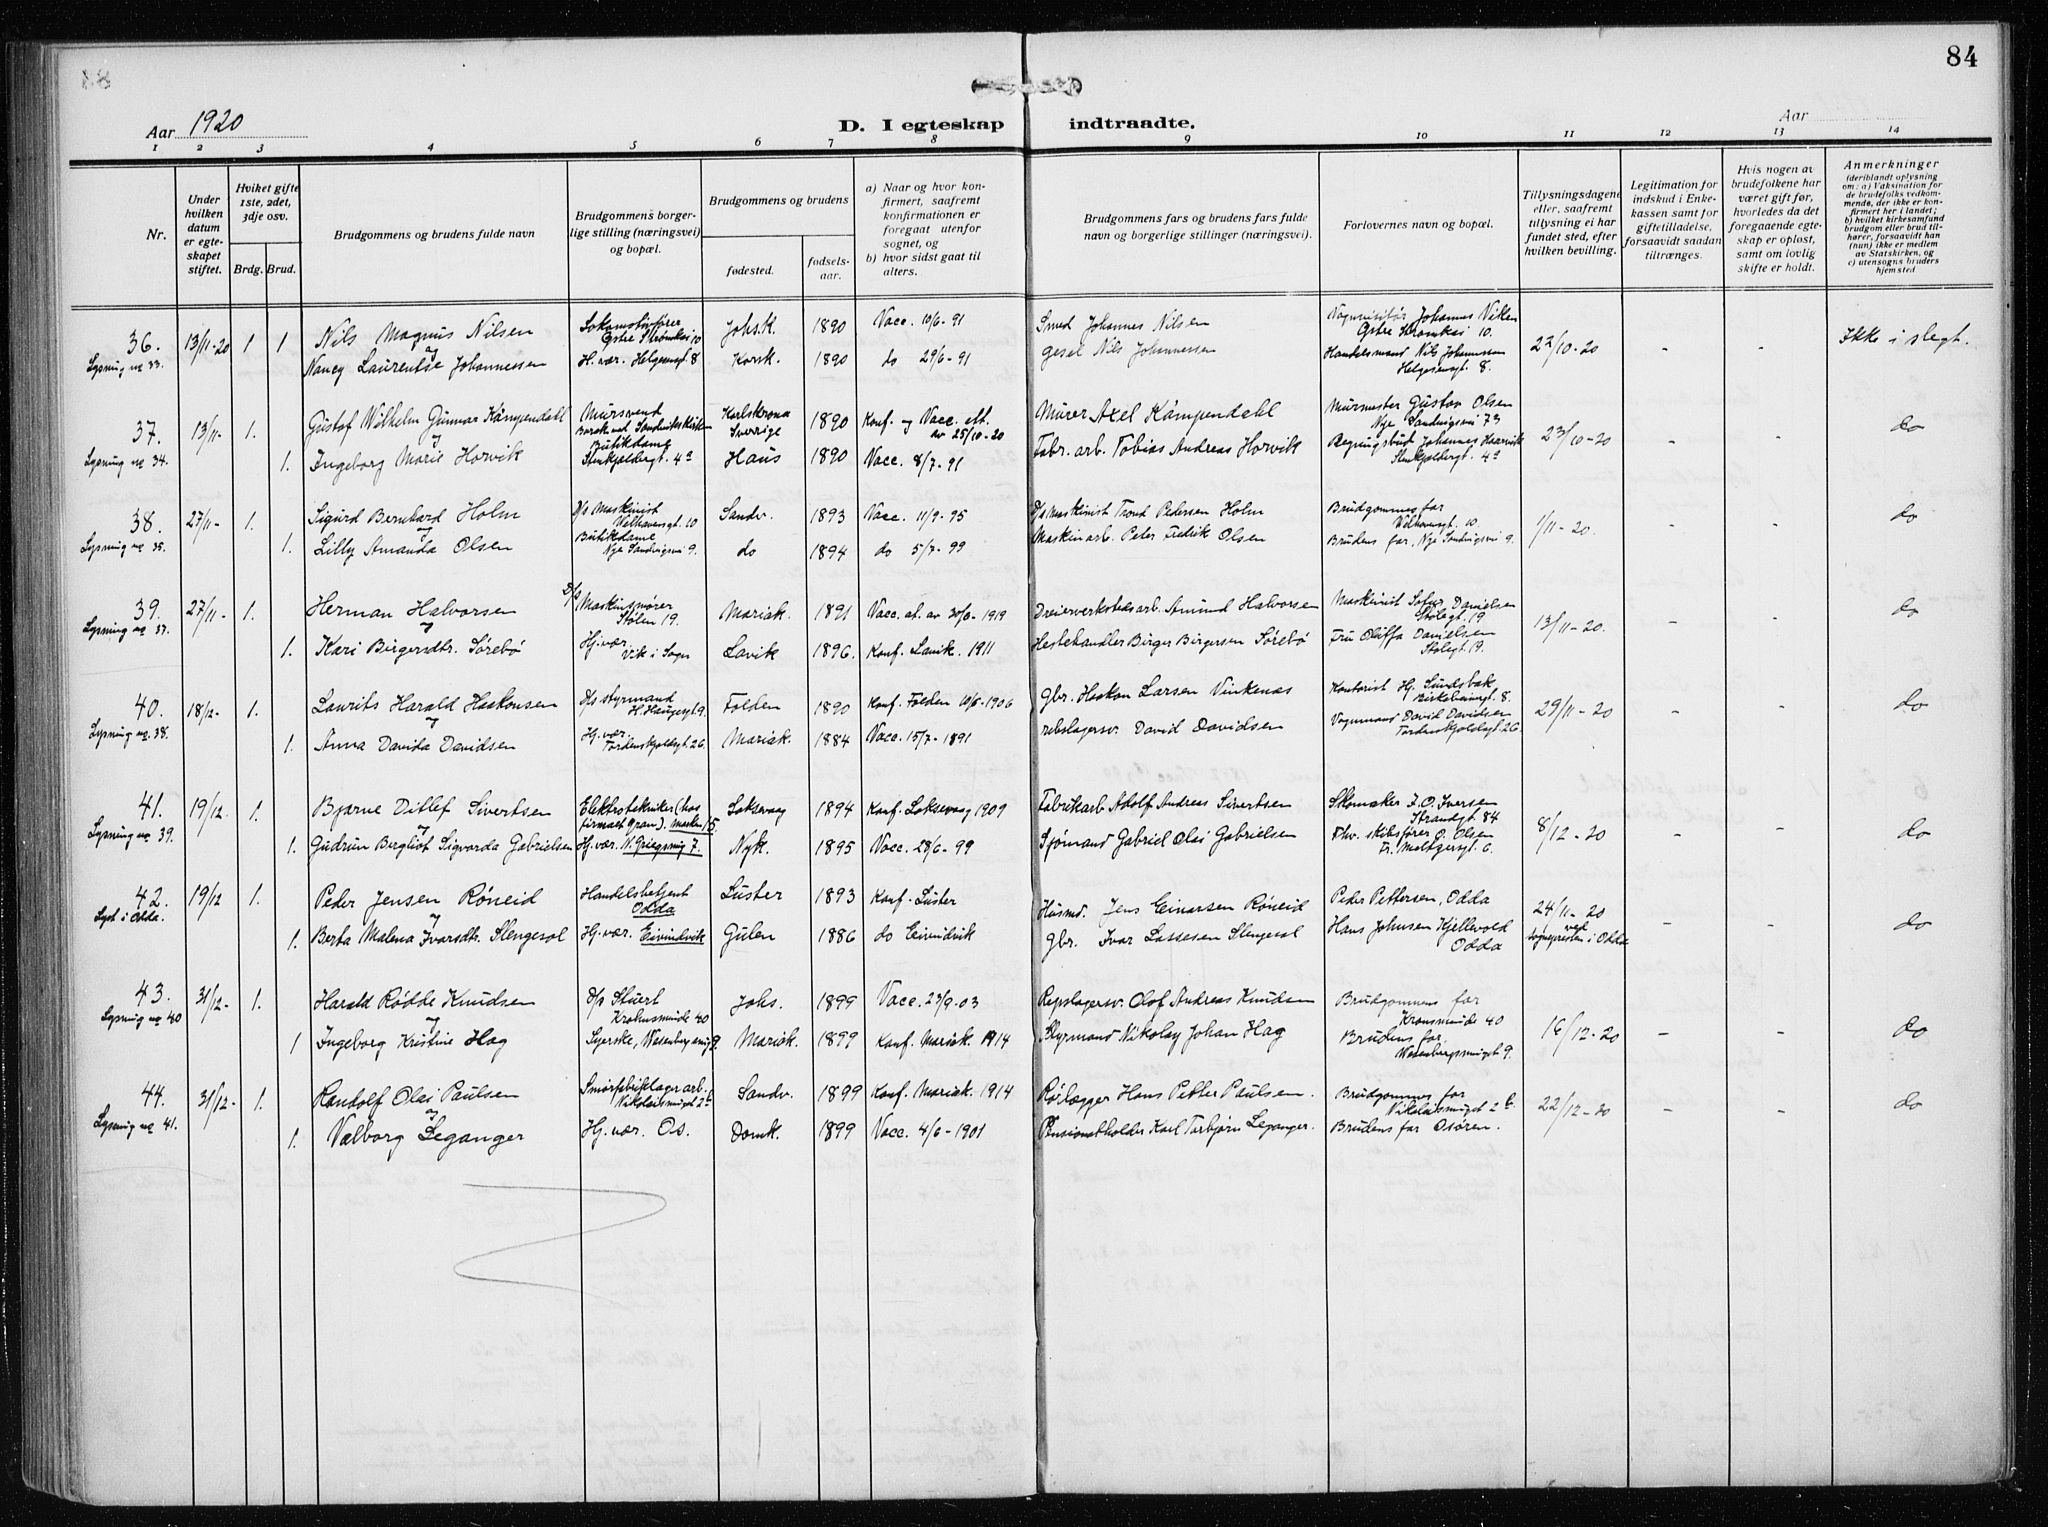 84
Aar 1920
D. I egteskap indtraadte.
Aar
1 2 3 4 5 6 7 8 9 10 11 12 13 14
Nr.
Under hvilken datum er egteskapet stiftet.
Hviket gifte 1ste, 2det, 3dje osv.
Brdg. Brud.
Brudgommens og brudens fulde navn
Brudgommens borgerlige stilling (næringsvei) og bopæl.
Brudgommens og brudens
fødested.
fødselsaar.
a) Naar og hvor konfirmert, saafremt konfirmationen er foregaat utenfor sognet, og
b) hvor sidst gaat til alters.
Brudgommens fars og brudens fars fulde navn og borgerlige stillinger (næringsvei).
Forlovernes navn og bopæl.
Tillysningsdagene eller, saafremt tillysning ei har fundet sted, efter hvilken bevilling.
Legitimation for indskud i Enkekassen samt for giftetilladelse, forsaavidt saadan tiltrænges.
Hvis nogen av brudefolkene har været gift før, hvorledes da det foregaaende egteskap er opløst, samt om lovlig skifte er holdt.
Anmerkninger (deriblandt oplysning om: a) Vaksination for de brudefolks vedkommende, der ikke er konfirmert her i landet; b) hvilket kirkesamfund brudgom eller brud tilhører, forsaavidt han (hun) ikke er medlem av Statskirken, og c) utensogns bruders hjemsted
36. 13/11-20 1 1 Nils Magnus Nilsen Lokomotivfører Østre Strømkai 10 Johs.k. 1890 Vacc. 10/6-91 Smed Johannes Nilsen Johannes Viken Østre Strømkai 10. 22/10-20 - - Ikke i slegt.
Lysning no 33. og
Nancy Laurentse Johannessen H. vær. Helgesensgt 8 Korsk. 1890 do 29/6-91 Gesel Nils Johannessen Handelsmand Nils Johannessen Helgesensgt. 8.
37. 13/11- 1. Gustaf Wilhelm Gunnar Kämpendahl Mursvend Karlskrona Sverige 1890 Konf. og Vacc. att. av 25/10-20 Murer Axel Kämpendahl Murmester Gustav Olsen Nye Sandvigsvei 73 23/10-20 - - do
Lysning no 34. og
1. Ingeborg Marie Horvik Butikdame Stenkjeldergt. 4a Haus 1890 Vacc. 8/7-91 Fabr. arb. Tobias Andreas Horvik Regningsbud Johannes Haarvik Stenkjeldergt. 4a
38. 27/11- 1. Sigurd Bernhard Holm D/s Maskinist Welhavensgt. 10 Sandv. 1893 Vacc. 11/9-95 D/s Maskinist Trond Pedersen Holm Brudgommens far Welhavensgt. 10 1/11-20. - - do
Lysning no 35. og
1. Lilly Amanda Olsen Butikdame Nye Sandvigsvei 9. do 1894 do 5/7-99 Maskinarb. Peter Fredrik Olsen Brudens far, Nye Sandvigsvei 9.
39. 27/11- 1. Herman Halvorsen D/s Maskinsmører Stølen 19. Mariak. 1891 Vacc. at. av 30/8-1919 Dreierverkstedsarb. Amund Halvorsen Maskinist Sofus Danielsen Stølegt. 19 13/11-20. - - do
Lysning no 37. og
1. Kari Birgersdtr. Sørebø Hj. vær. Vik i Sogn Lavik 1896. Konf. Lavik. 1911 Hestehandler Birger Birgersen Sørebø Fru Oluffa Danielsen Stølegt 19.
40. 18/12- 1. Laurits Harald Haakonsen D/s styrmand H. Haugesgt 9. Folden 1890 Konf. Folden 10/6-1906 Gbr. Haakon Larsen Vinkenæs Kontorist Hj. Sundsbak Birkebeinergt. 8. 29/11-20 - - do
Lysning no. 38. og
1. Anna Davida Davidsen Hj. vær. Tordenskjoldsgt. 26. Mariak. 1884 Vacc. 15/7-1891 rebslagersv. David Davidsen Vognmand David Davidsen Tordenskjoldsgt. 26
41. 19/12. 1. Bjarne Ditlef Sivertsen Elektrotekniker (hos firmaet Gran). Marken 15 Laksevaag 1894 Konf. Laksevaag 1909 Fabrikarb. Adolf Andreas Sivertsen Skomaker F. O. Iversen Strandgt. 84 8/12-20 - - do
Lysning no 39. og
1. Gudrun Bergliot Sigvarda Gabrielsen Hj. vær. N. Griegsmug 7. Nyk. 1895 Vacc. 28/6-99 Sjømand Gabriel Olai Gabrielsen Fhv. skibsfører O. Olsen Fr. Meltzersgt. 6.
42. 19/12 1. Peder Jensen Røneid Handelsbetjent Odda Luster 1893 Konf. Luster Husmd. Jens Einarsen Røneid Peder Pettersen, Odda 24/11-20 ved sognepresten i Odda - - do
Lyst i Odda. og
1. Berta Malena Ivarsdtr. Slengesol Hj. vær. Eivindvik Gulen 1886 do Eivindvik Gbr. Ivar Lassesen Slengesol Hans Johnsen Kjellevold Odda
43. 31/12- 1. Harald Rødde Knudsen D/s Stuert Krohnsminde 40 Johs. 1899 Vacc. 23/9-03 Repslagersv. Olof Andreas Knudsen Brudgommens far Kronsminde 40 16/12-20 - - do
Lysning no 40 og
1 Ingeborg Kristine Hag Syerske, Wesenbergsmug 9. Mariak. 1899 Konf. Mariak. 1914 Styrmand Nikolay Johan Hag Brudens far, Wesenbergsmuget 9.
44. 31/12- 1. Randolf Olai Paulsen Smørfabriklagerarb. Nikolaismuget 2b Sandv. 1899 Konf. Mariak. 1914 Rørlægger Hans Petter Paulsen. Brudgommens far Nikolaismuget 2b. 22/12-20 - - do
Lysning no 41. og
1. Valborg Leganger Hj. vær. Os. Domk. 1899 Vacc. 4/6-1901 Pensionatholder Karl Torbjørn Leganger. Brudens far Osøren.